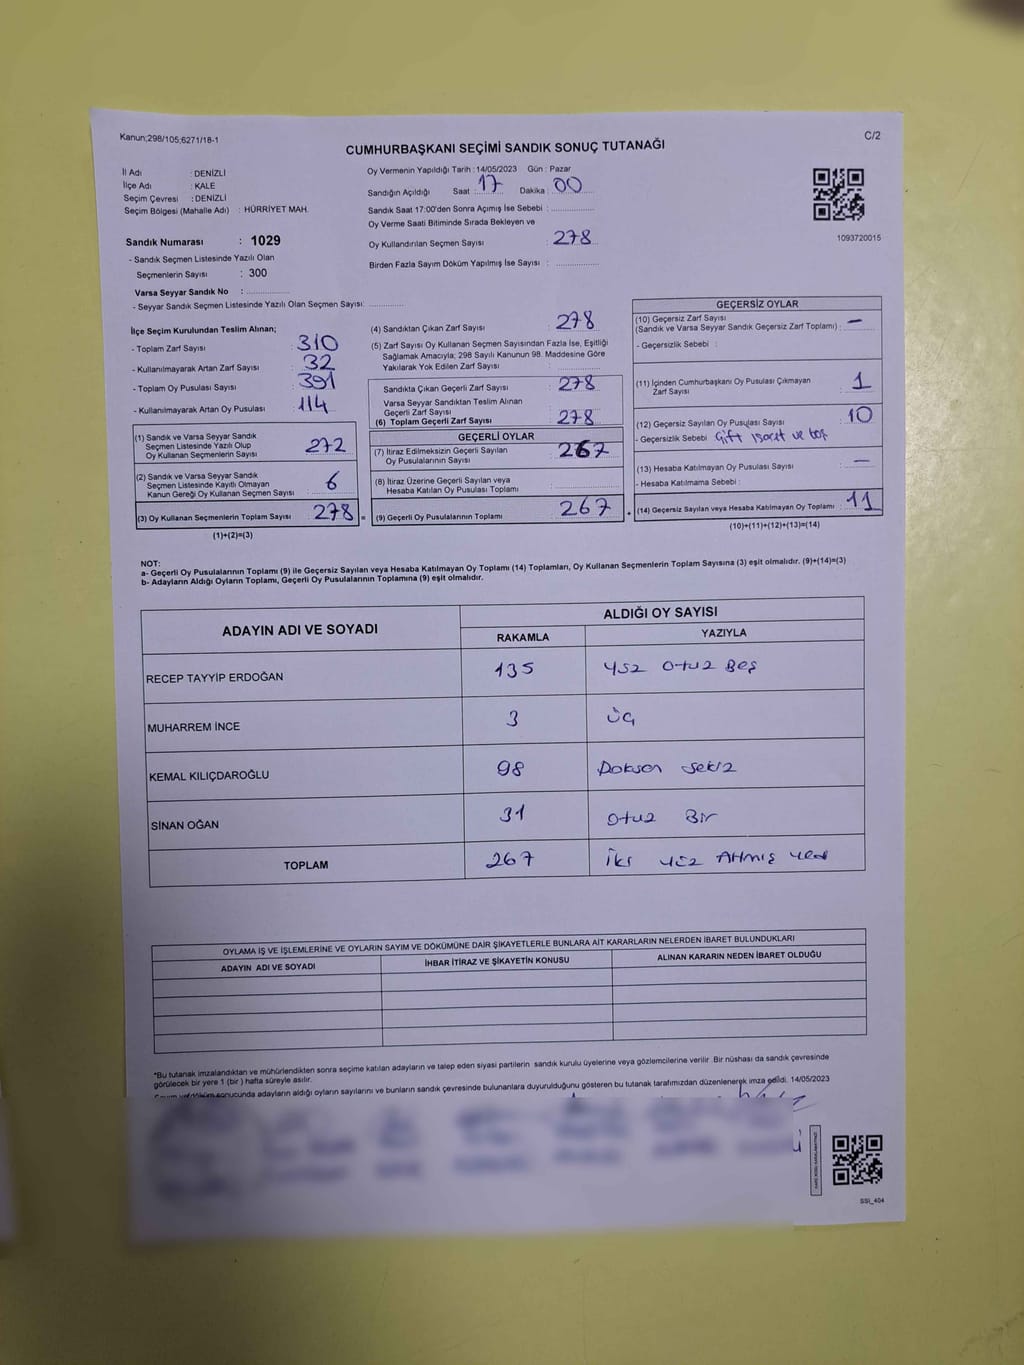 Kanun;298/105;6271/18-1
C/2
CUMHURBAŞKANI SEÇİMİ SANDIK SONUÇ TUTANAĞI
İl Adı : DENİZLİ
İlçe Adı : KALE
Seçim Çevresi : DENİZLİ
Seçim Bölgesi (Mahalle Adı) : HÜRRİYET MAH.
Sandık Numarası : 1029
- Sandık Seçmen Listesinde Yazılı Olan
Seçmenlerin Sayısı : 300
Varsa Seyyar Sandık No :
- Seyyar Sandık Seçmen Listesinde Yazılı Olan Seçmen Sayısı:
Oy Vermenin Yapıldığı Tarih : 14/05/2023 Gün : Pazar
Sandığın Açıldığı Saat : 17 Dakika : 00
Sandık Saat 17:00'den Sonra Açımış İse Sebebi :
Oy Verme Saati Bitiminde Sırada Bekleyen ve
Oy Kullandırılan Seçmen Sayısı : 278
Birden Fazla Sayım Döküm Yapılmış İse Sayısı :
1093720015
İlçe Seçim Kurulundan Teslim Alınan;
- Toplam Zarf Sayısı : 310
- Kullanılmayarak Artan Zarf Sayısı : 32
- Toplam Oy Pusulası Sayısı : 391
- Kullanılmayarak Artan Oy Pusulası : 114
(1) Sandık ve Varsa Seyyar Sandık
Seçmen Listesinde Yazılı Olup
Oy Kullanan Seçmenlerin Sayısı : 272
(2) Sandık ve Varsa Seyyar Sandık
Seçmen Listesinde Kayıtlı Olmayan
Kanun Gereği Oy Kullanan Seçmen Sayısı : 6
(3) Oy Kullanan Seçmenlerin Toplam Sayısı : 278
(1)+(2)=(3)
(4) Sandıktan Çıkan Zarf Sayısı : 278
(5) Zarf Sayısı Oy Kullanan Seçmen Sayısından Fazla İse, Eşitliği
Sağlamak Amacıyla; 298 Sayılı Kanunun 98. Maddesine Göre
Yakılarak Yok Edilen Zarf Sayısı :
Sandıkta Çıkan Geçerli Zarf Sayısı : 278
Varsa Seyyar Sandıktan Teslim Alınan
Geçerli Zarf Sayısı
(6) Toplam Geçerli Zarf Sayısı : 278
GEÇERLİ OYLAR
(7) İtiraz Edilmeksizin Geçerli Sayılan
Oy Pusulalarının Sayısı : 267
(8) İtiraz Üzerine Geçerli Sayılan veya
Hesaba Katılan Oy Pusulası Toplamı :
= (9) Geçerli Oy Pusulalarının Toplamı : 267
GEÇERSİZ OYLAR
(10) Geçersiz Zarf Sayısı
(Sandık ve Varsa Seyyar Sandık Geçersiz Zarf Toplamı) : —
- Geçersizlik Sebebi :
(11) İçinden Cumhurbaşkanı Oy Pusulası Çıkmayan
Zarf Sayısı : 1
(12) Geçersiz Sayılan Oy Pusulası Sayısı : 10
- Geçersizlik Sebebi : Çift işaret ve boş
(13) Hesaba Katılmayan Oy Pusulası Sayısı : —
- Hesaba Katılmama Sebebi :
(14) Geçersiz Sayılan veya Hesaba Katılmayan Oy Toplamı : 11
(10)+(11)+(12)+(13)=(14)
NOT:
a- Geçerli Oy Pusulalarının Toplamı (9) ile Geçersiz Sayılan veya Hesaba Katılmayan Oy Toplamı (14) Toplamları, Oy Kullanan Seçmenlerin Toplam Sayısına (3) eşit olmalıdır. (9)+(14)=(3)
b- Adayların Aldığı Oyların Toplamı, Geçerli Oy Pusulalarının Toplamına (9) eşit olmalıdır.
ADAYIN ADI VE SOYADI
ALDIĞI OY SAYISI
RAKAMLA YAZIYLA
RECEP TAYYİP ERDOĞAN 135 Yüz Otuz Beş
MUHARREM İNCE 3 Üç
KEMAL KILIÇDAROĞLU 98 Doksan Sekiz
SİNAN OĞAN 31 Otuz Bir
TOPLAM 267 İki Yüz Atmış Yedi
OYLAMA İŞ VE İŞLEMLERİNE VE OYLARIN SAYIM VE DÖKÜMÜNE DAİR ŞİKAYETLERLE BUNLARA AİT KARARLARIN NELERDEN İBARET BULUNDUKLARI
ADAYIN ADI VE SOYADI İHBAR İTİRAZ VE ŞİKAYETİN KONUSU ALINAN KARARIN NEDEN İBARET OLDUĞU
*Bu tutanak imzalandıktan ve mühürlendikten sonra seçime katılan adayların ve talep eden siyasi partilerin sandık kurulu üyelerine veya gözlemcilerine verilir. Bir nüshası da sandık çevresinde
görülecek bir yere 1 (bir ) hafta süreyle asılır.
sonucunda adayların aldığı oyların sayılarını ve bunların sandık çevresinde bulunanlara duyurulduğunu gösteren bu tutanak tarafımızdan düzenlenerek imza edildi. 14/05/2023
SSI_404